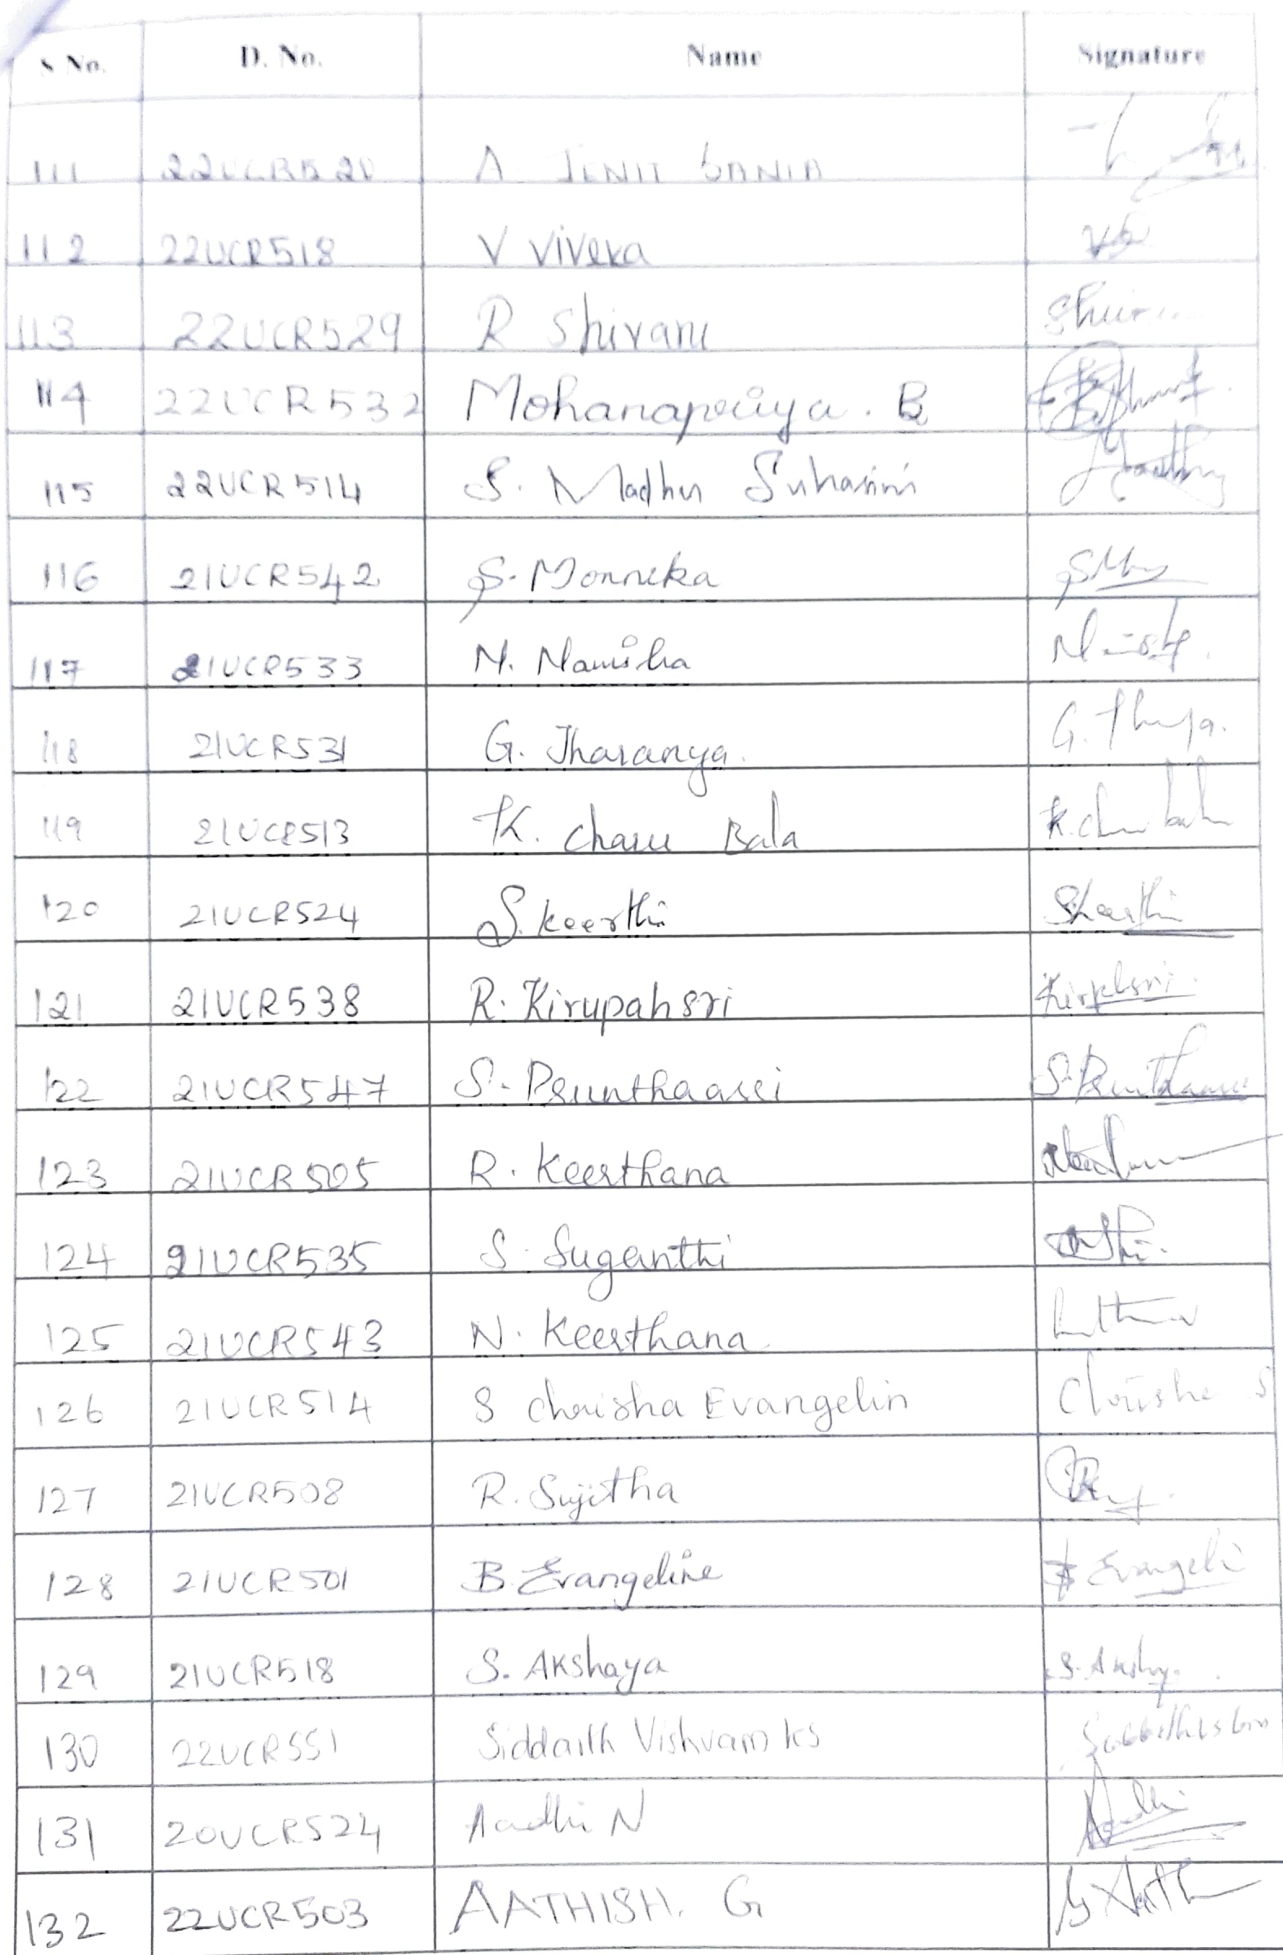 S No. D. No. Name Signature
111 22UCR520 A JENIT SANIA
112 22UCR518 V Viveka
113 22UCR529 R Shivani
114 22UCR532 Mohanapriya. B
115 22UCR514 S. Madhu Suhasini
116 21UCR542 S. Monneka
117 21UCR533 N. Manisha
118 21UCR531 G. Tharanya.
119 21UCR513 K. Charu Bala K. Charu bala
120 21UCR524 S. keerthi Skeerthi
121 21UCR538 R. Kirupahsri
122 21UCR547 S.
123 21UCR505 R. Keerthana
124 21UCR535 S. Suganthi
125 21UCR543 N. Keerthana
126 21UCR514 S Chrisha Evangelin Chrisha S
127 21UCR508 R. Sujitha
128 21UCR501 B. Evangeline Evangeli
129 21UCR518 S. Akshaya S. Akshy.
130 22UCR551 Siddarth Vishvam ks
131 20UCR524 Aadhi N Aadhi
132 22UCR503 AATHISH. G